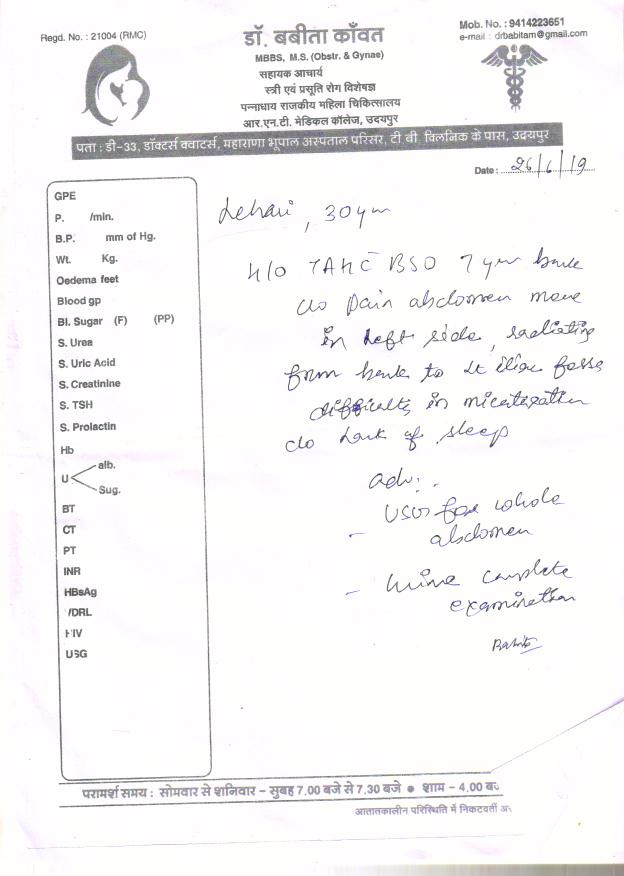 Regd. No. : 21004 (RMC)
Mob. No. : 9414223651
e-mail : drbabitam@gmail.com
डॉ. बबीता काँवत
MBBS, M.S. (Obstr. & Gynae)
सहायक आचार्य
स्त्री एवं प्रसूति रोग विशेषज्ञ
पन्नाधाय राजकीय महिला चिकित्सालय
आर.एन.टी. मेडिकल कॉलेज, उदयपुर
पता : डी-33, डॉक्टर्स क्वाटर्स, महाराणा भूपाल अस्पताल परिसर, टी.बी. क्लिनिक के पास, उदयपुर
Date : 26/6/19
GPE
P. /min.
B.P. mm of Hg.
Wt. Kg.
Oedema feet
Blood gp
Bl. Sugar (F) (PP)
S. Urea
S. Uric Acid
S. Creatinine
S. TSH
S. Prolactin
Hb
U alb.
Sug.
BT
CT
PT
INR
HBsAg
VDRL
HIV
USG
30 yrs
H/O TAH C̄ BSO 7 yrs back
c/o pain abdomen more
in left side, radiating
from back to Lt iliac fossa
difficulty in micturation
c/o lack of sleep
adv:.
USG for whole
abdomen
- Urine complete
examination
परामर्श समय : सोमवार से शनिवार – सुबह 7.00 बजे से 7.30 बजे ● शाम – 4.00
आतातकालीन परिस्थिति में निकटवर्ती